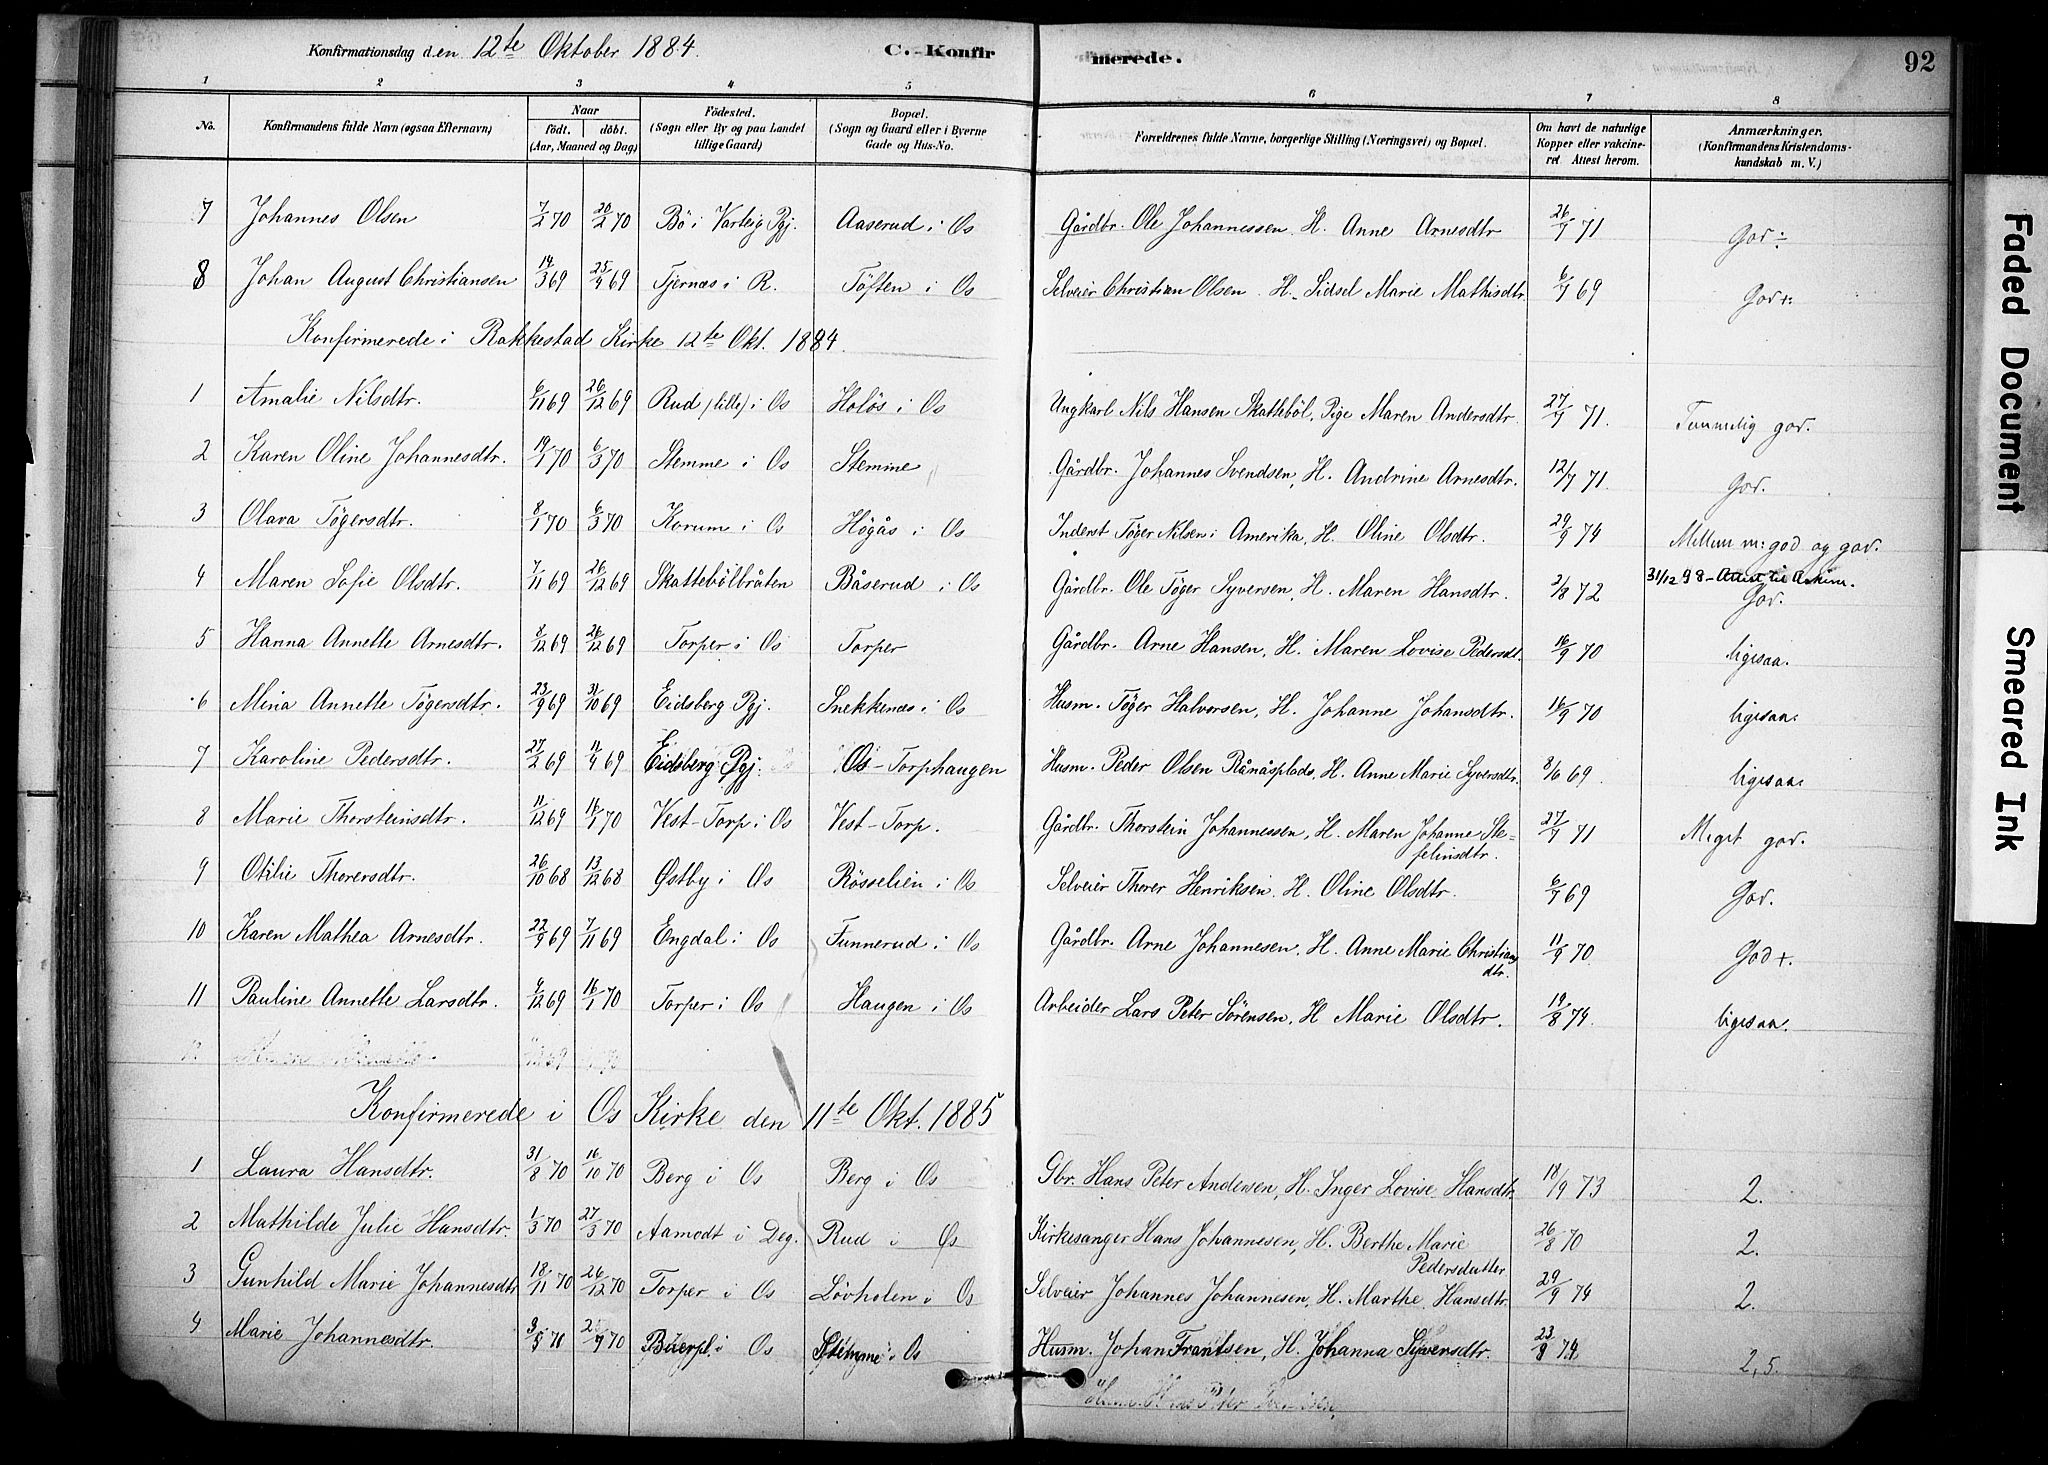 Konfirmationsdag den 12te Oktober 1884. C. - Konfirmerede. 92
1 2 3 4 5 6 7 8
No. Konfirmandens fulde Navn (ogsaa Efternavn) Naar födt. döbt. (Aar, Maaned og Dag) Födested. (Sogn eller By og paa Landet tillige Gaard) Bopæl. (Sogn og Gaard eller i Byerne Gade og Hus-No. Forældrenes fulde Navne, borgerlige Stilling (Næringsvei) og Bopæl. Om havt de naturlige Kopper eller vakcineret. Attest herom. Anmærkninger. (Konfirmandens Kristendomskundskab m. V.)
7 Johannes Olsen 7/2 70 20/2 70 Bö i Varteig Pgj. Aaserud i Os Gårdbr. Ole Johannessen H. Anne Arnesdtr 26/7 71 God ÷
8 Johan August Christiansen 14/3 69 25/4 69 Tjernæs i R. Töften i Os Selveier Christian Olsen. H. Sidsel Marie Mathisdtr. 6/7 69 God +.
Konfirmerede i Rakkestad Kirke 12te Okt. 1884.
1 Amalie Nilsdtr. 6/11 69 26/12 69 Rud (lille) i Os Holös i Os Ungkarl Nils Hansen Skatteböl, Pige Maren Andersdtr. 27/7 71. Temmelig god.
2 Karen Oline Johannesdtr. 19/1 70 6/3 70 Stemme i Os Stemme Gårdbr. Johannes Svendsen, H. Andrine Arnesdtr. 12/7 71. God.
3 Olava Tögersdtr. 8/1 70 6/3 70 Korum i Os Högås i Os Inderst Töger Nilsen i Amerika, H. Oline Olsdtr. 29/9 74 Mellem m: god og god.
4 Maren Sofie Olsdtr. 7/11 69 26/12 69 Skattebölbråten Båserud i Os Gårdbr. Ole Töger Syversen, H. Maren Hansdtr. 2/8 72 31/12 98 - Attest til Askim. God.
5 Hanna Annette Arnesdtr. 8/12 69 26/12 69 Torper i Os Torper Gårdbr. Arne Hansen, H. Maren Lovise Pedersdt. 16/9 70 ligesaa.
6 Mina Annette Tögersdtr. 23/9 69 31/10 69 Eidsberg Pgj. Snekkenæs i Os Husm. Töger Halvorsen, H. Johanne Johansdtr. 16/9 70 ligesaa.
7 Karoline Pedersdtr. 27/2 69 11/4 69 Eidsberg Pgj. Os - Torphaugen Husm. Peder Olsen Rånåsplads, H. Anne Marie Syversdtr. 8/6 69. ligesaa.
8 Marie Thorsteinsdtr. 11/12 69 16/1 70 Vest-Torp i Os Vest-Torp. Gårdbr. Thorstein Johannessen, H. Maren Johanne Stefelinsdtr. 27/7 71 Meget god.
9 Otilie Thorersdtr. 26/10 68 13/12 68 Østby i Os Rösselien i Os Selveier Thorer Henriksen. H. Oline Olsdtr. 6/7 69 God.
10 Karen Mathea Arnesdtr. 22/9 69 7/11 69 Engdal i Os Funnerud i Os Gårdbr. Arne Johannesen, H. Anne Marie Christiansdtr. 11/9 70 God +.
11 Pauline Annette Larsdtr. 4/12 69 16/1 70 Torper i Os Haugen i Os Arbeider Lars Peter Sörensen, H Marie Olsdtr. 19/8 74. ligesaa.
Konfirmerede i Os Kirke den 11te Okt. 1885
1 Laura Hansdtr. 31/8 70 16/10 70 Berg i Os Berg i Os Gbr. Hans Peter Andersen, H. Inger Lovise Hansdtr 18/9 73 2.
2 Mathilde Julie Hansdtr. 1/3 70 27/3 70 Aamodt i Deg. Rud i Os Kirkesanger Hans Johannesen, H. Berthe Marie Pedersdatter 26/8 70 2.
3 Gunhild Marie Johannesdtr 18/11 70 26/12 70 Torper i Os Lövholen i Os Selveier Johannes Johannesen, H. Marthe Hansdtr. 29/9 74 2.
4 Marie Johannesdtr. 70 70 Buerpl. i Os Stemme i Os Husm. Johan Frantsen, H. Johanna Syversdtr. 2,5.
Faded Document Smeared Ink